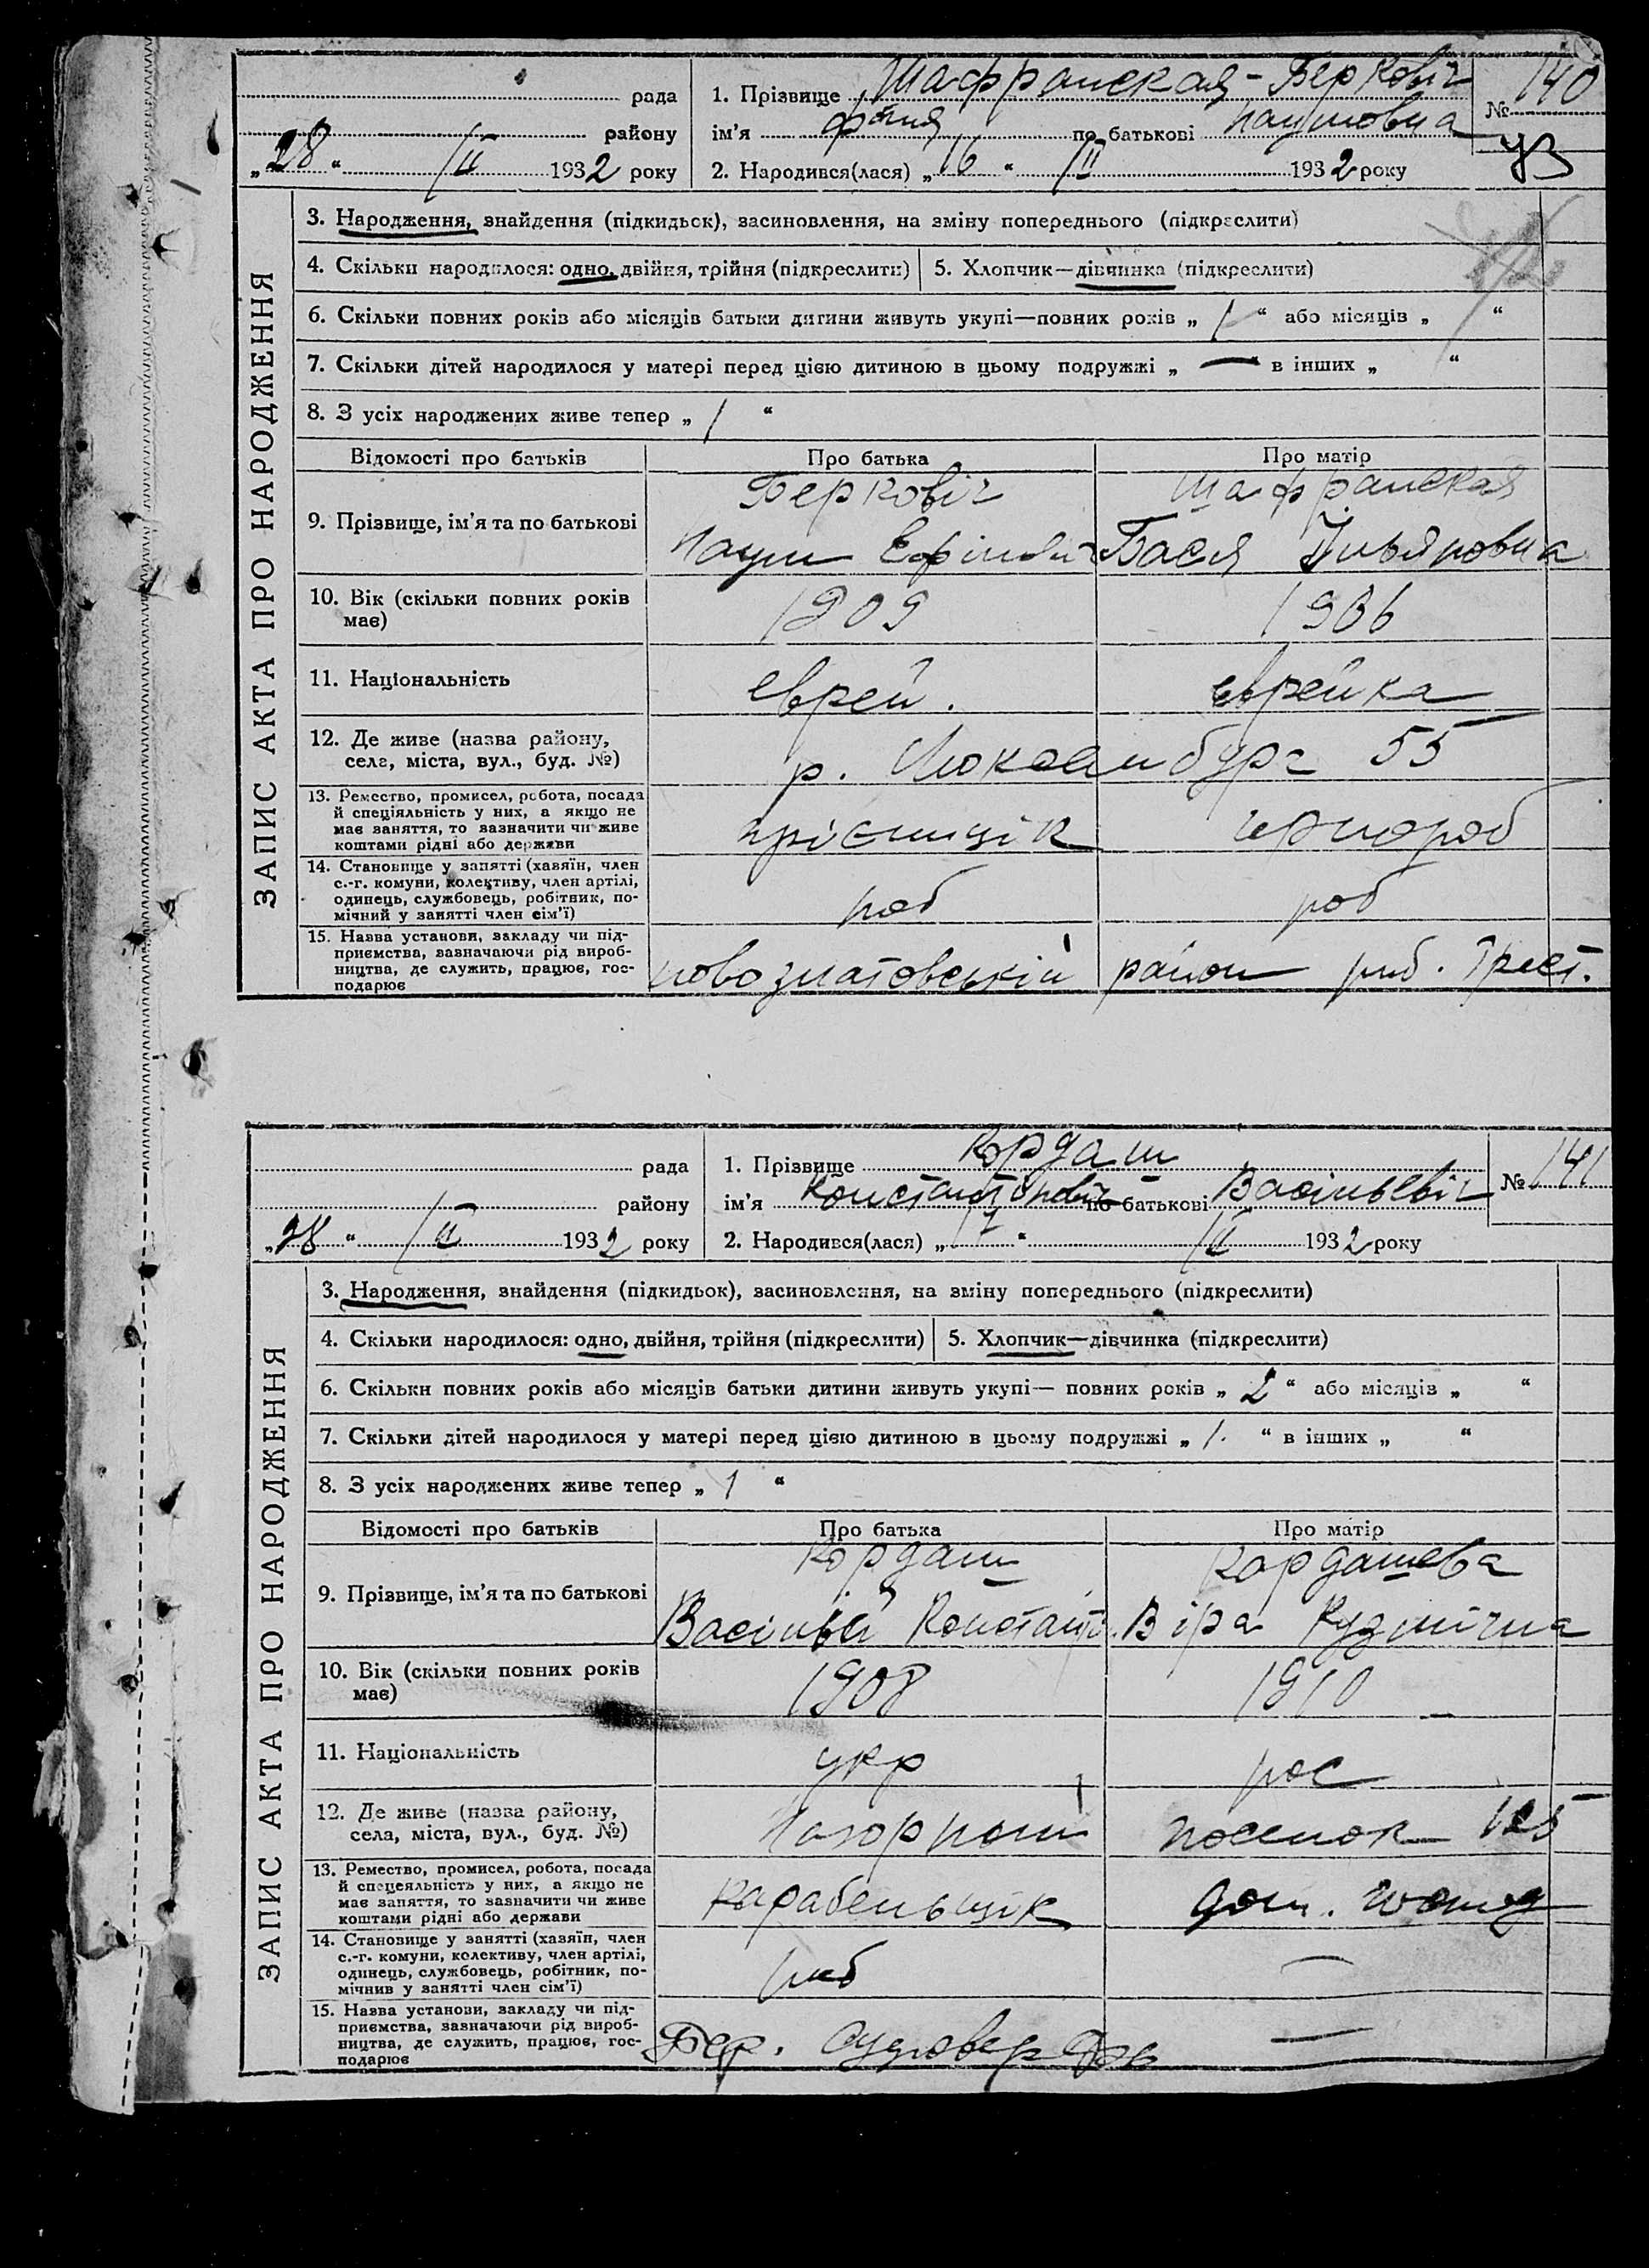 рада
району
„28“ /II 1932 року
1. Прізвище Шафранская-Берковіч
ім'я Фаня по батькові Наумовна
2. Народився(лася) „16“ /II 1932 року
№ 140
ЗАПИС АКТА ПРО НАРОДЖЕННЯ
3. Народження, знайдення (підкидьок), засиновлення, на зміну попереднього (підкреслити)
4. Скільки народилося: одно, двійня, трійня (підкреслити)
5. Хлопчик—дівчинка (підкреслити)
6. Скільки повних років або місяців батьки дитини живуть укупі—повних років „1“ або місяців „ “
7. Скільки дітей народилося у матері перед цією дитиною в цьому подружжі „—“ в інших „ “
8. З усіх народжених живе тепер „1“
Відомості про батьків Про батька Про матір
9. Прізвище, ім'я та по батькові
Берковіч
Наум
Шафранская
Бася
10. Вік (скільки повних років
має)
1909
1906
11. Національність
еврей.
еврейка
12. Де живе (назва району,
села, міста, вул., буд. №)
р. Люксамбург 55
13. Ремество, промисел, робота, посада
й спеціяльність у них, а якщо не
має заняття, то зазначити чи живе
коштами рідні або держави
чорнороб
14. Становище у занятті (хазяїн, член
с.-г. комуни, колективу, член артілі,
одинець, службовець, робітник, по-
мічний у занятті член сім'ї)
роб
роб
15. Назва установи, закладу чи під-
приємства, зазначаючи рід вироб-
ництва, де служить, працює, гос-
подарює
район Трест.
рада
району
„28“ /II 1932 року
1. Прізвище Кордаш
ім'я по батькові Васільевіч
2. Народився(лася) „17“ /II 1932 року
№ 141
ЗАПИС АКТА ПРО НАРОДЖЕННЯ
3. Народження, знайдення (підкидьок), засиновлення, на зміну попереднього (підкреслити)
4. Скільки народилося: одно, двійня, трійня (підкреслити)
5. Хлопчик—дівчинка (підкреслити)
6. Скільки повних років або місяців батьки дитини живуть укупі— повних років „2“ або місяців „ “
7. Скільки дітей народилося у матері перед цією дитиною в цьому подружжі „1.“ в інших „ “
8. З усіх народжених живе тепер „1“
Відомості про батьків Про батька Про матір
9. Прізвище, ім'я та по батькові
Кордаш
Васільій Констант.
Кордашева
Віра Кузмічна
10. Вік (скільки повних років
має)
1908
1910
11. Національність
укр
рос
12. Де живе (назва району,
села, міста, вул., буд. №)
поселок 125
13. Ремество, промисел, робота, посада
й спецеяльність у них, а якщо не
має заняття, то зазначити чи живе
коштами рідні або держави
карабельщік
дом.
14. Становище у занятті (хазяїн, член
с.-г. комуни, колективу, член артілі,
одинець, службовець, робітник, по-
мічнив у занятті член сім'ї)
роб
—
15. Назва установи, закладу чи під-
приємства, зазначаючи рід вироб-
ництва, де служить, працює, гос-
подарює
—